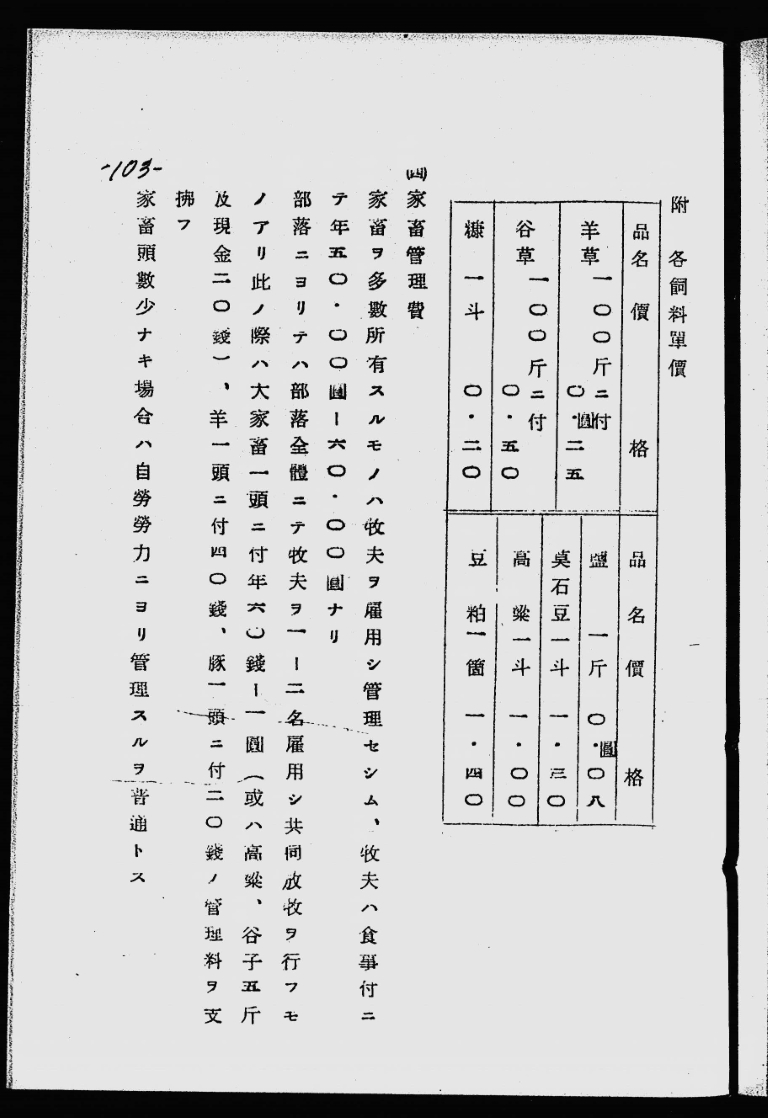 附 各飼料單價
品名 價格
羊草 一〇〇斤ニ付 〇・二五圓
谷草 一〇〇斤ニ付 〇・五〇
糠 一斗 〇・二〇
品名 價格
鹽 一斤 〇・〇八圓
莫石豆 一斗 一・三〇
高粱 一斗 一・〇〇
豆粕 一箇 一・四〇
㈣家畜管理費
家畜ヲ多數所有スルモノハ牧夫ヲ雇用シ管理セシム、牧夫ハ食事付ニ
テ年五〇・〇〇圓ー六〇・〇〇圓ナリ
部落ニヨリテハ部落全體ニテ牧夫ヲ一ー二名雇用シ共同放牧ヲ行フモ
ノアリ此ノ際ハ大家畜一頭ニ付年六〇錢ー一圓(或ハ高粱、谷子五斤
及現金二〇錢)、羊一頭ニ付四〇錢、豚一頭ニ付二〇錢ノ管理料ヲ支
拂フ
家畜頭數少ナキ場合ハ自勞勞力ニヨリ管理スルヲ普通トス
-103-